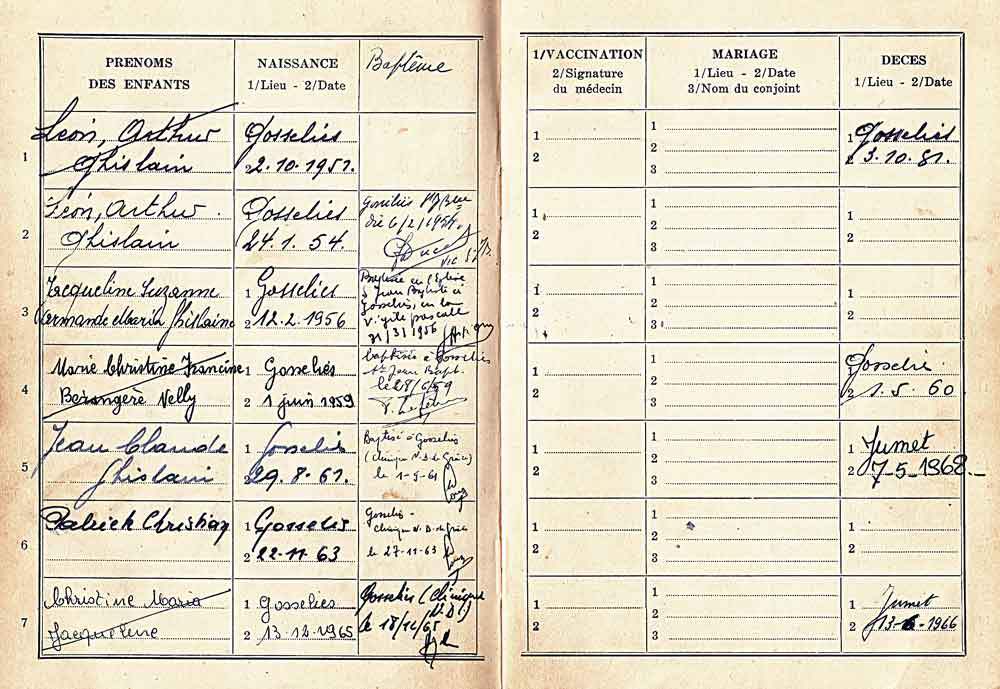 PRENOMS
DES ENFANTS
NAISSANCE
1/Lieu - 2/Date
Baptême
1/VACCINATION
2/Signature
du médecin
MARIAGE
1/Lieu - 2/Date
3/Nom du conjoint
DECES
1/Lieu - 2/Date
1
Léon, Arthur
Ghislain
Gosselies
2 2.10.1951.
1
2
1
2
3
1 Gosselies
2 3.10.51.
2
Léon, Arthur
Ghislain
Gosselies
24.1.54.
Gosselies
le 6/2/1954.
1
2
1
2
3
1
2
3
Jacqueline Suzanne
Armande Maria Ghislaine
1 Gosselies
2 12.2.1956
Baptisée en l'Eglise
S Jean Baptiste à
Gosselies, en la
vigile pascale
31/3/1956
1
2
1
2
3
1
2
4
Marie Christine Francine
Berangère Nelly
1 Gosselies
2 1 juin 1959
baptisée à Gosselies
St Jean Bapt.
le 28/6/59
1
2
1
2
3
1 Gosselies
2 1.5.60
5
Jean Claude
Ghislain
1 Gosselies
29.8.61.
Baptisé à Gosselies
(clinique N.D. de Grâce)
le 1-9-61
1
2
1
2
3
1 Jumet
2 7-5-1968
6
Patrick Christian
1 Gosselies
2 22-11-63
Gosselies -
Clinique N.D. de Grâce
le 27-11-63
1
2
1
2
3
1
2
7
Christine Maria
Jacqueline
1 Gosselies
2 13-12-1965
Gosselies (Clinique
N.D.)
le 18/12/65
1
2
1
2
3
1 Jumet
2 13-6-1966